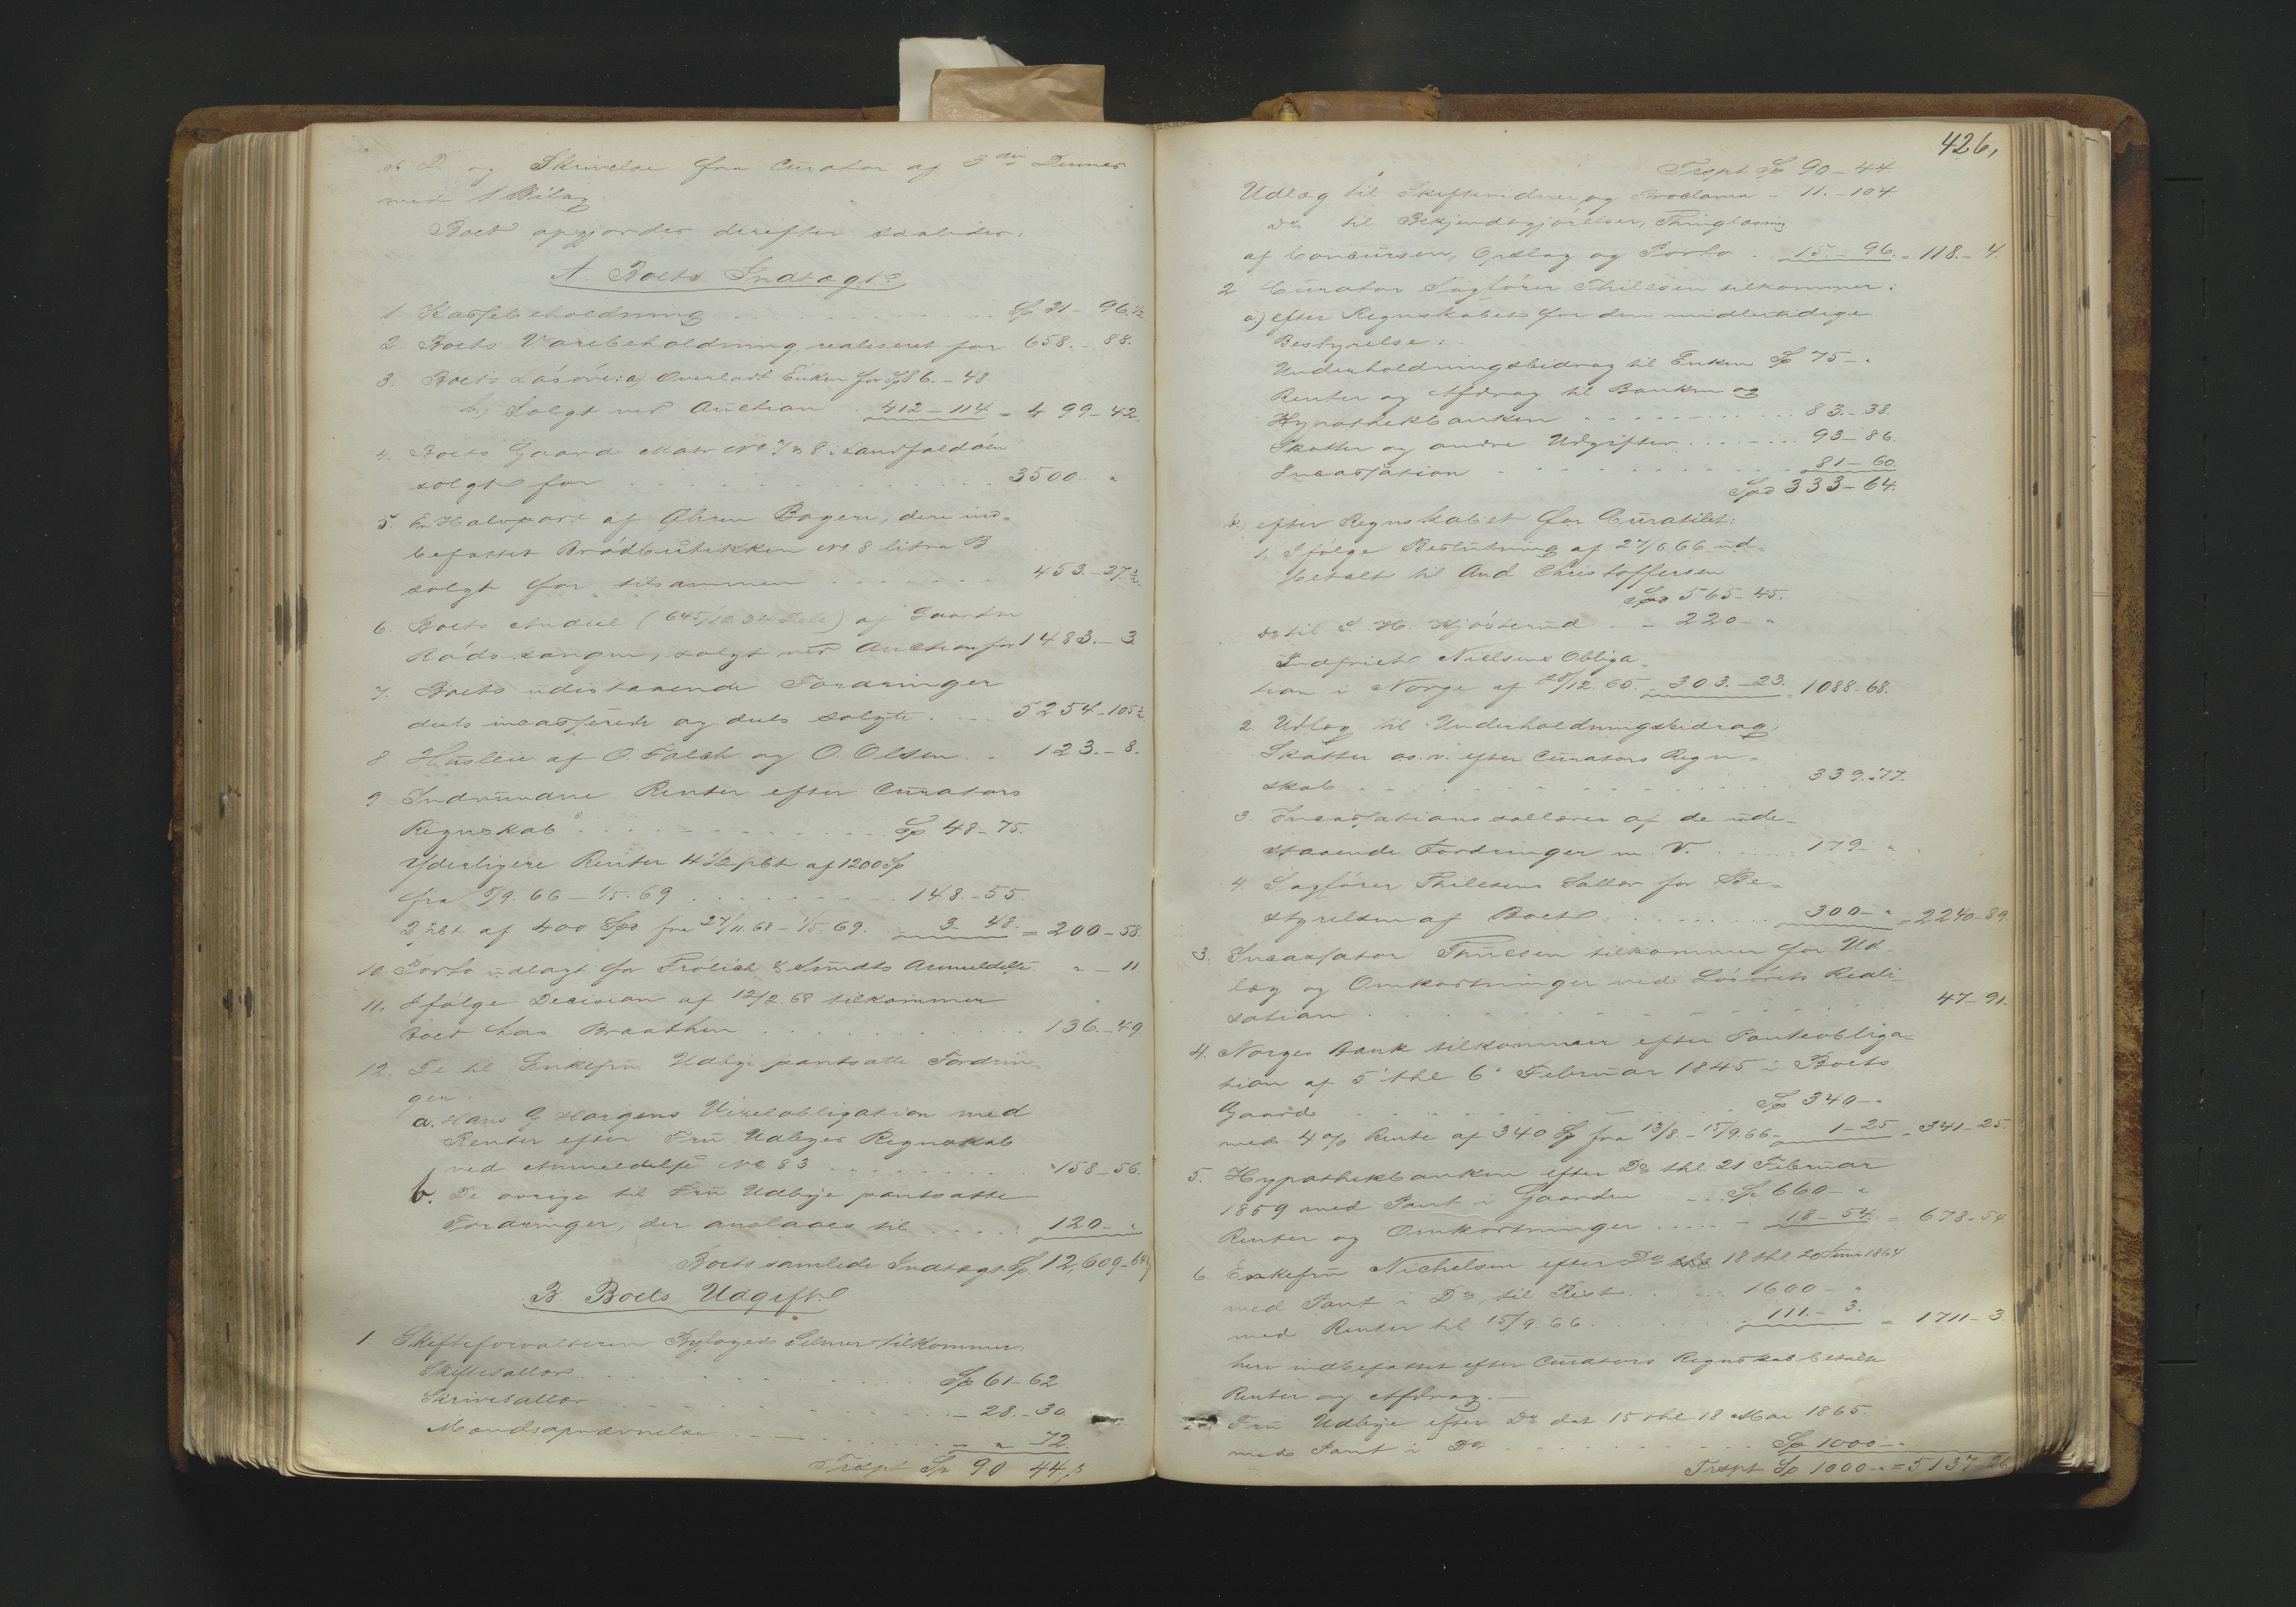 og Skrivelse fra Curator af 3die Dennes
med 1 Bilag.
Boet opgjordes derefter saaledes:
A. Boets Indtægt.
1. Kassebeholdning . . . Sp 21 - 96 1/2
2. Boets Varebeholdning realiseret for 658. - 88.
3. Boets Løsøre: a) Overladt Enken for Sp 86. - 48
b) Solgt ved Auction . 412 - 114 = 499 - 42.
4. Boets Gaard Matr No 7 & 8 i
solgt for . . . 3500 - "
5. En Halvpart af Øhren Bageri, deri ind-
befattet Brødbutikken No 8 litra B
solgt for tilsammen . . . 453. - 27 1/2.
6. Boets Andeel ( ) af Gaarden
solgt ved Auction for 1483. - 3
7. Boets udistaaende Fordringer
dels incasserede og dels solgte . . . 5254 - 105 1/2
8. Husleie af O. Falch og O. Olsen . . 123. - 8.
9. Indvundne Renter efter Curators
Regnskab . . . Sp 48 - 75.
Yderligere Renter 4 1/2 pCt af 1200 Sp
fra 5/9. 66 - 1/5. 69 . . . 148. - 55.
2 pCt af 400 Spd fra 27/11. 68 - 1/5. 69. - 3 - 48. = 200 - 58.
10. Porto udlagt for Frølich & Sundts Anmeldelse " - 11
11. Ifølge Decision af 12/2 68 tilkommer
Boet hos Braathen . . . 136. - 49.
12. De til Enkefru Udbye pantsatte Fordrin-
ger:
a. Hans G Haugens Vexelobligation med
Renter efter Fru Udbyes Regnskab
ved Anmeldelse No 83 . . . 158 - 56.
b. De øvrige til Fru Udbye pantsatte
Fordringer, der anslaaes til . . . 120 - "
Boets samlede Indtægt Sp. 12,609 - 64 1/2
B. Boets Udgift
1. Skifteforvalteren Byfoged tilkommer:
Skiftesallær . . . Sp 61 - 62.
Skriversallær . . . - 28. - 30.
Mandsopnævnelse . . . - " - 72
Trspt Sp 90 44. ß
426,
Trspt Sp 90 - 44
Udlæg til Skiftevidner og Proclama - 11. - 104.
Do til Bekjendtgjørelser, Thinglæsning
af Concursen, Opslag og Porto . . 15. - 96. = 118. - 4.
2. Curator Sagfører Thillesen tilkommer:
a) efter Regnskabet for den midlertidige
Bestyrelse:
Underholdningsbidrag til Enken Sp 75 - "
Renter og Afdrag til Banken og
Hypothekbanken . . . 83. - 38.
Skatter og andre Udgifter . . . 93 - 86.
Incassation . . . 81 - 60
Spd 333 - 64.
b.) efter Regnskabet for Curatilet:
1. Ifølge Beslutning af 27/6 66 ud-
betalt til And Christoffersen
Spd. 565 - 45.
Do til S. H. Kjøsterud . - 220 - "
Indfriet Nielsens Obliga-
tion i Norge af 28/12. 65. - 303. - 23. 1088 - 68.
2. Udlæg til Underholdningsbidrag,
Skatter o.s.v. efter Curators Regn-
skab . . . 339. - 77.
3. Incassationssallærer af de ude-
staaende Fordringer m. V. . . . 179 - "
4. Sagfører Thillesens Sallær for Be-
styrelsen af Boet . . . 300 - " = 2240 - 89.
3. Incassator Thuesen tilkommer for Ud-
læg og Omkostninger ved Løsørets Reali-
sation . . . 47 - 91.
4. Norges Bank tilkommer efter Panteobliga-
tion af 5 thl 6 Februar 1845 i Boets
Gaard . . . Sp 340 - "
med 4 % Rente af 340 Sp fra 13/8. - 15/9. 66 - 1 - 25 = 341 - 25.
5. Hypothekbanken efter Do thl 21 Februar
1859 med Pant i Gaarden . . Sp 660 - "
Renter og Omkostninger . . . - 18 - 54. = 678 - 54.
6. Enkefru Nichelsen efter Do 18 thl 20 Juni 1864
med Pant i Do, til Rest . . . 1600 - "
med Renter til 15/9. 66 . . . 111. - 3. = 1711 - 3.
heri indbefattet efter Curators Regnskab betalte
Renter og Afdrag. -
Fru Udbye efter Do dat 15 thl 18 Mai 1865.
med Pant i Do . . . Sp 1000 - "
Trspt Sp 1000 - " = 5137 - 26